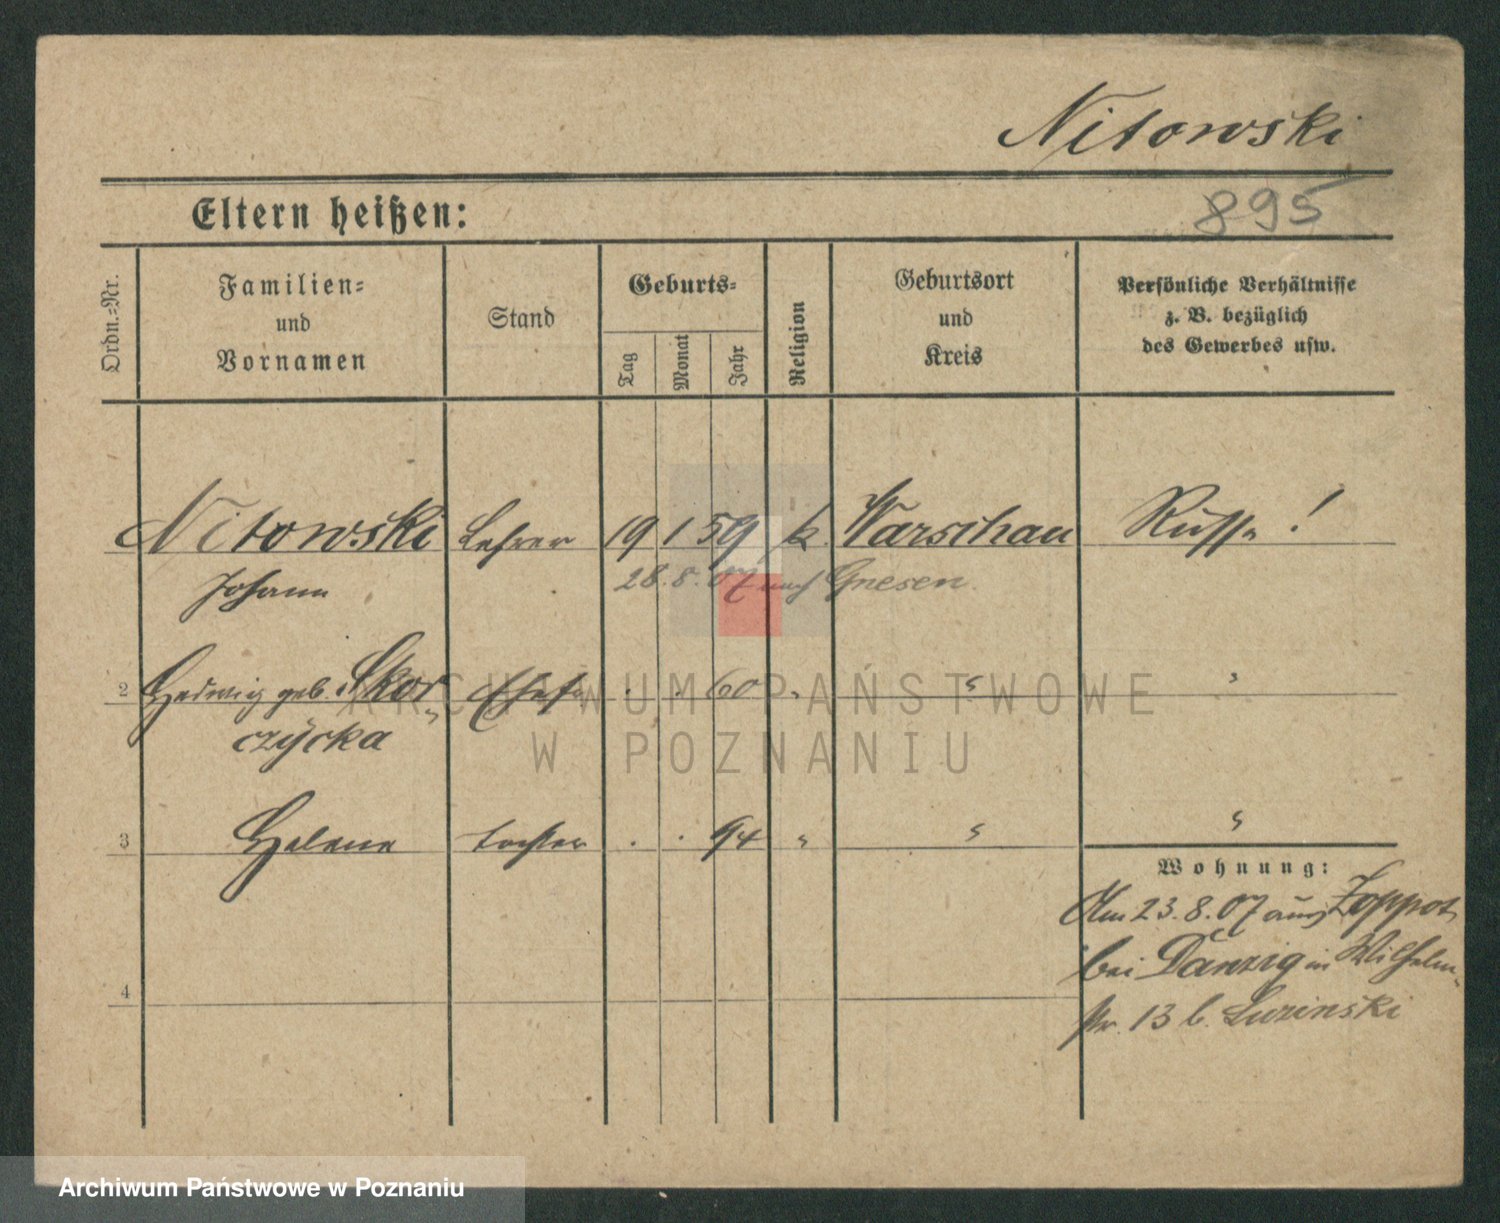 Nitowski
Eltern heißen:
895
Ordn.=Nr.
Familien=
und
Vornamen
Stand
Geburts=
Tag
Monat
Jahr
Religion
Geburtsort
und
Kreis
Persönliche Verhältnisse
z. B. bezüglich
des Gewerbes usw.
Nitowski Lehrer 19 1 59 k. Warschau Russe!
Johann 28. 8. 07 nach Gnesen.
2 Hedwig geb. Skor„ Ehefr . . 60 " " "
czycka
3 Helene Tochter . . 94 " " "
Wohnung:
Am 23.8.07 aus Zoppot
bei Danzig in Wilhelm„
str. 13 b. Luzinski
4
ARCHIWUM PAŃSTWOWE
W POZNANIU
Archiwum Państwowe w Poznaniu